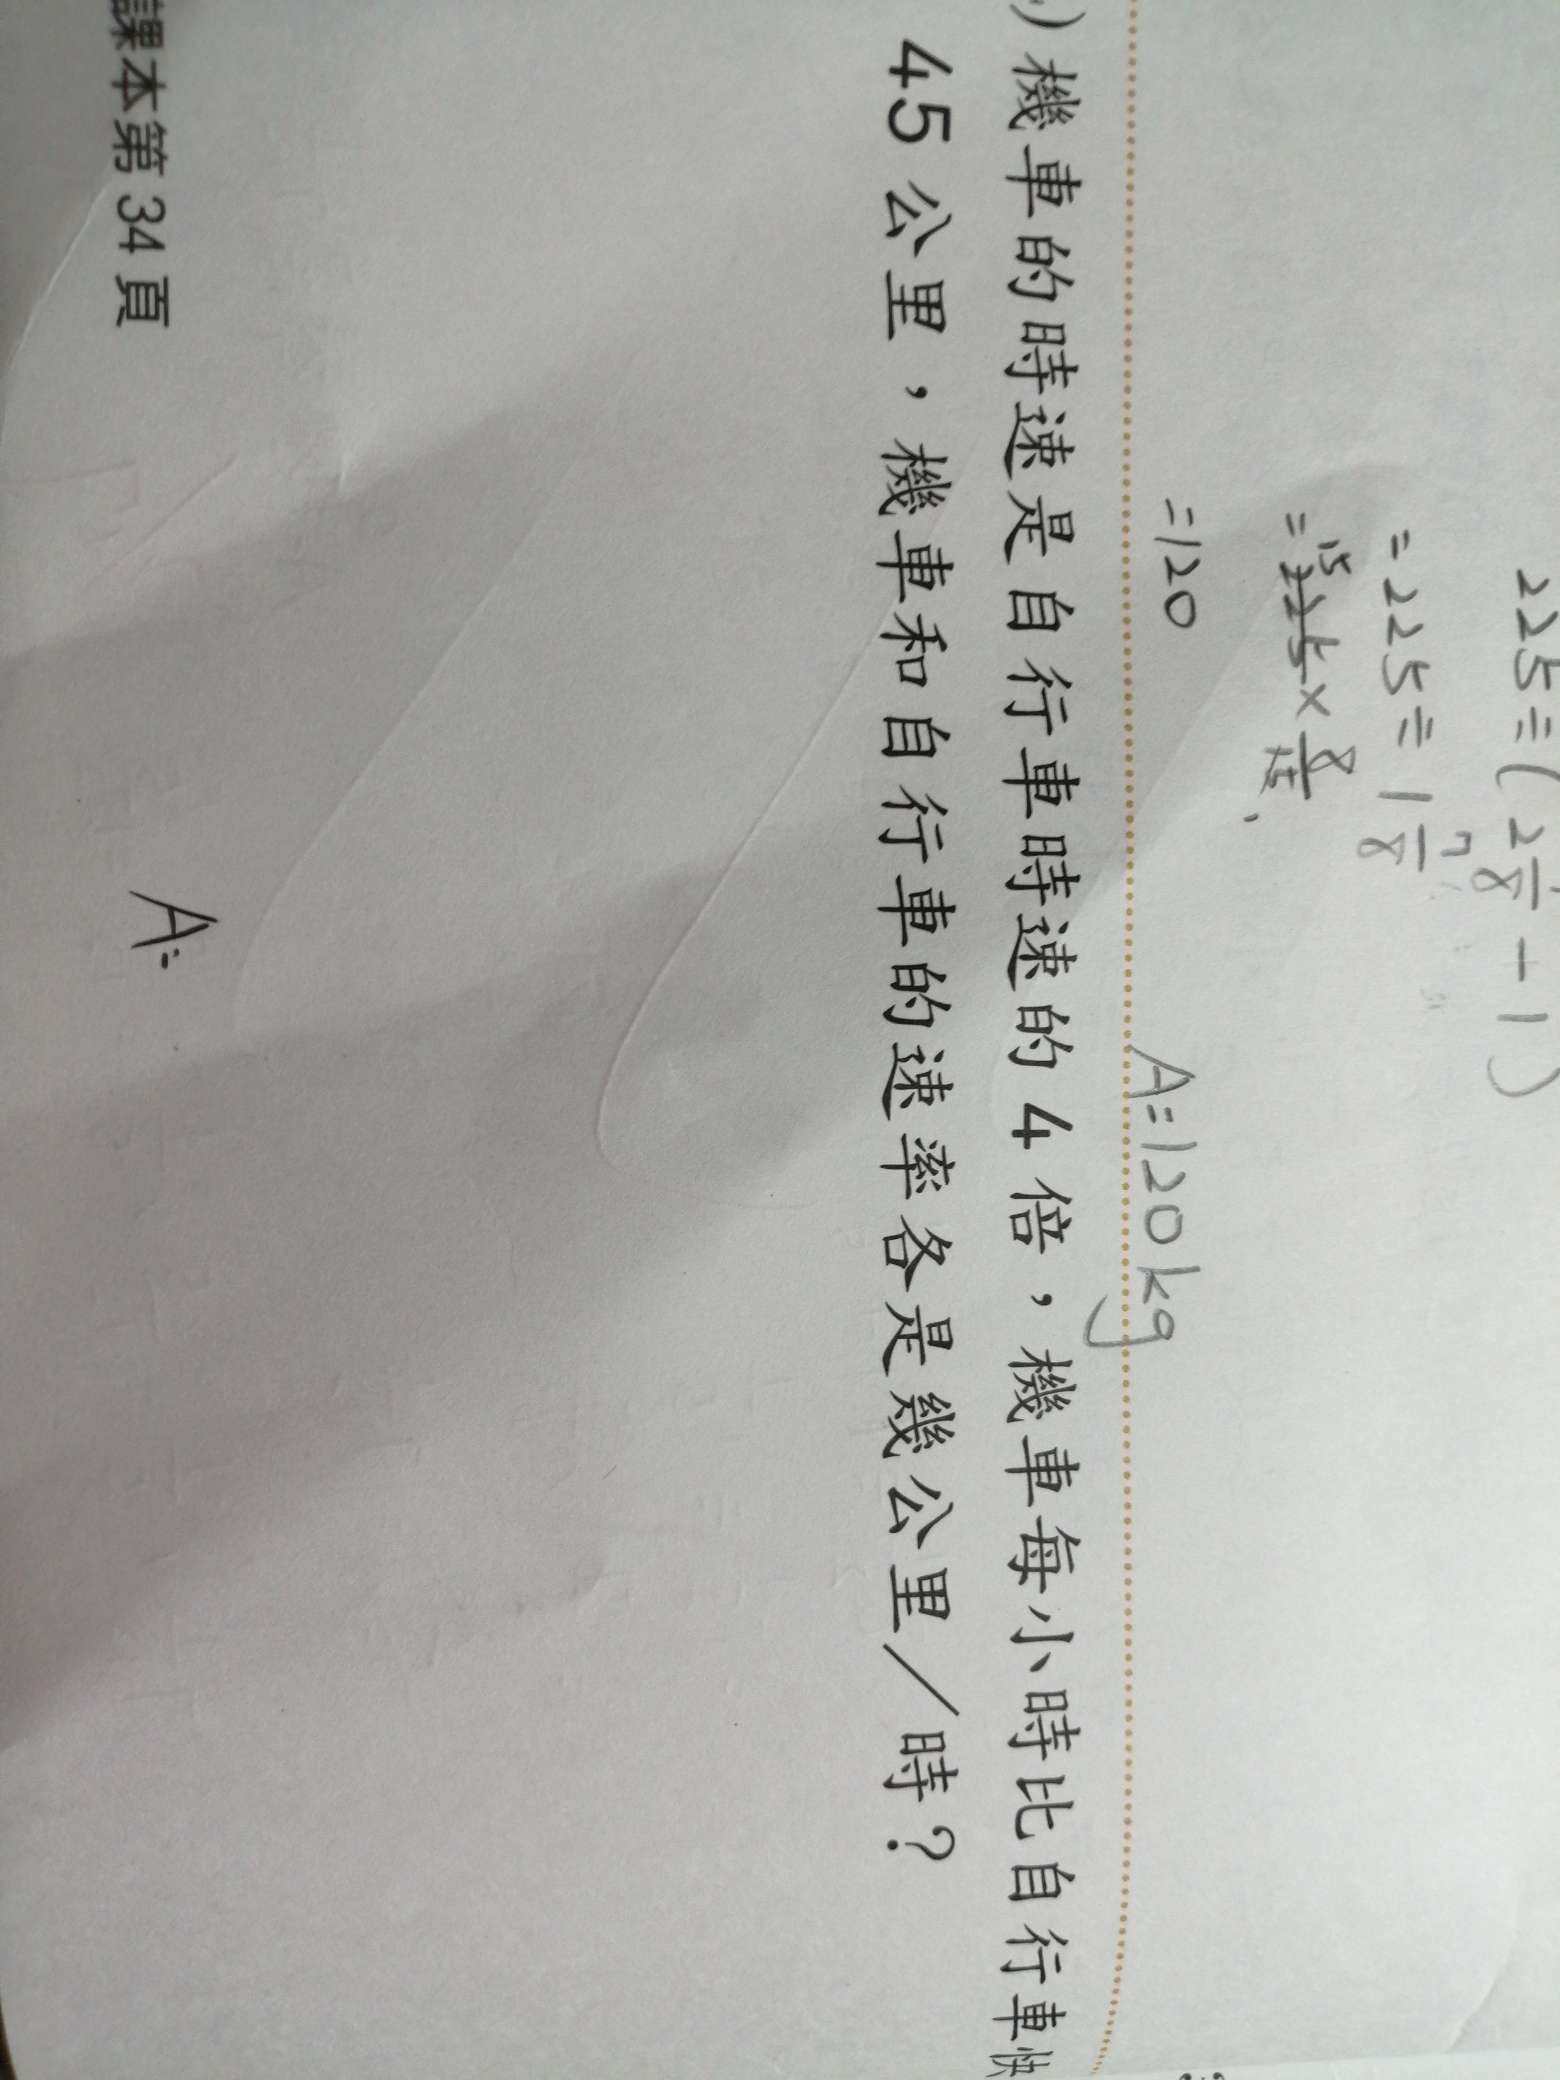 225÷(2 1/8 - 1)
=225÷1 7/8
=225×8/15 15
=120
A=120kg
機車的時速是自行車時速的4倍，機車每小時比自行車快
45公里，機車和自行車的速率各是幾公里／時？
A:
課本第34頁